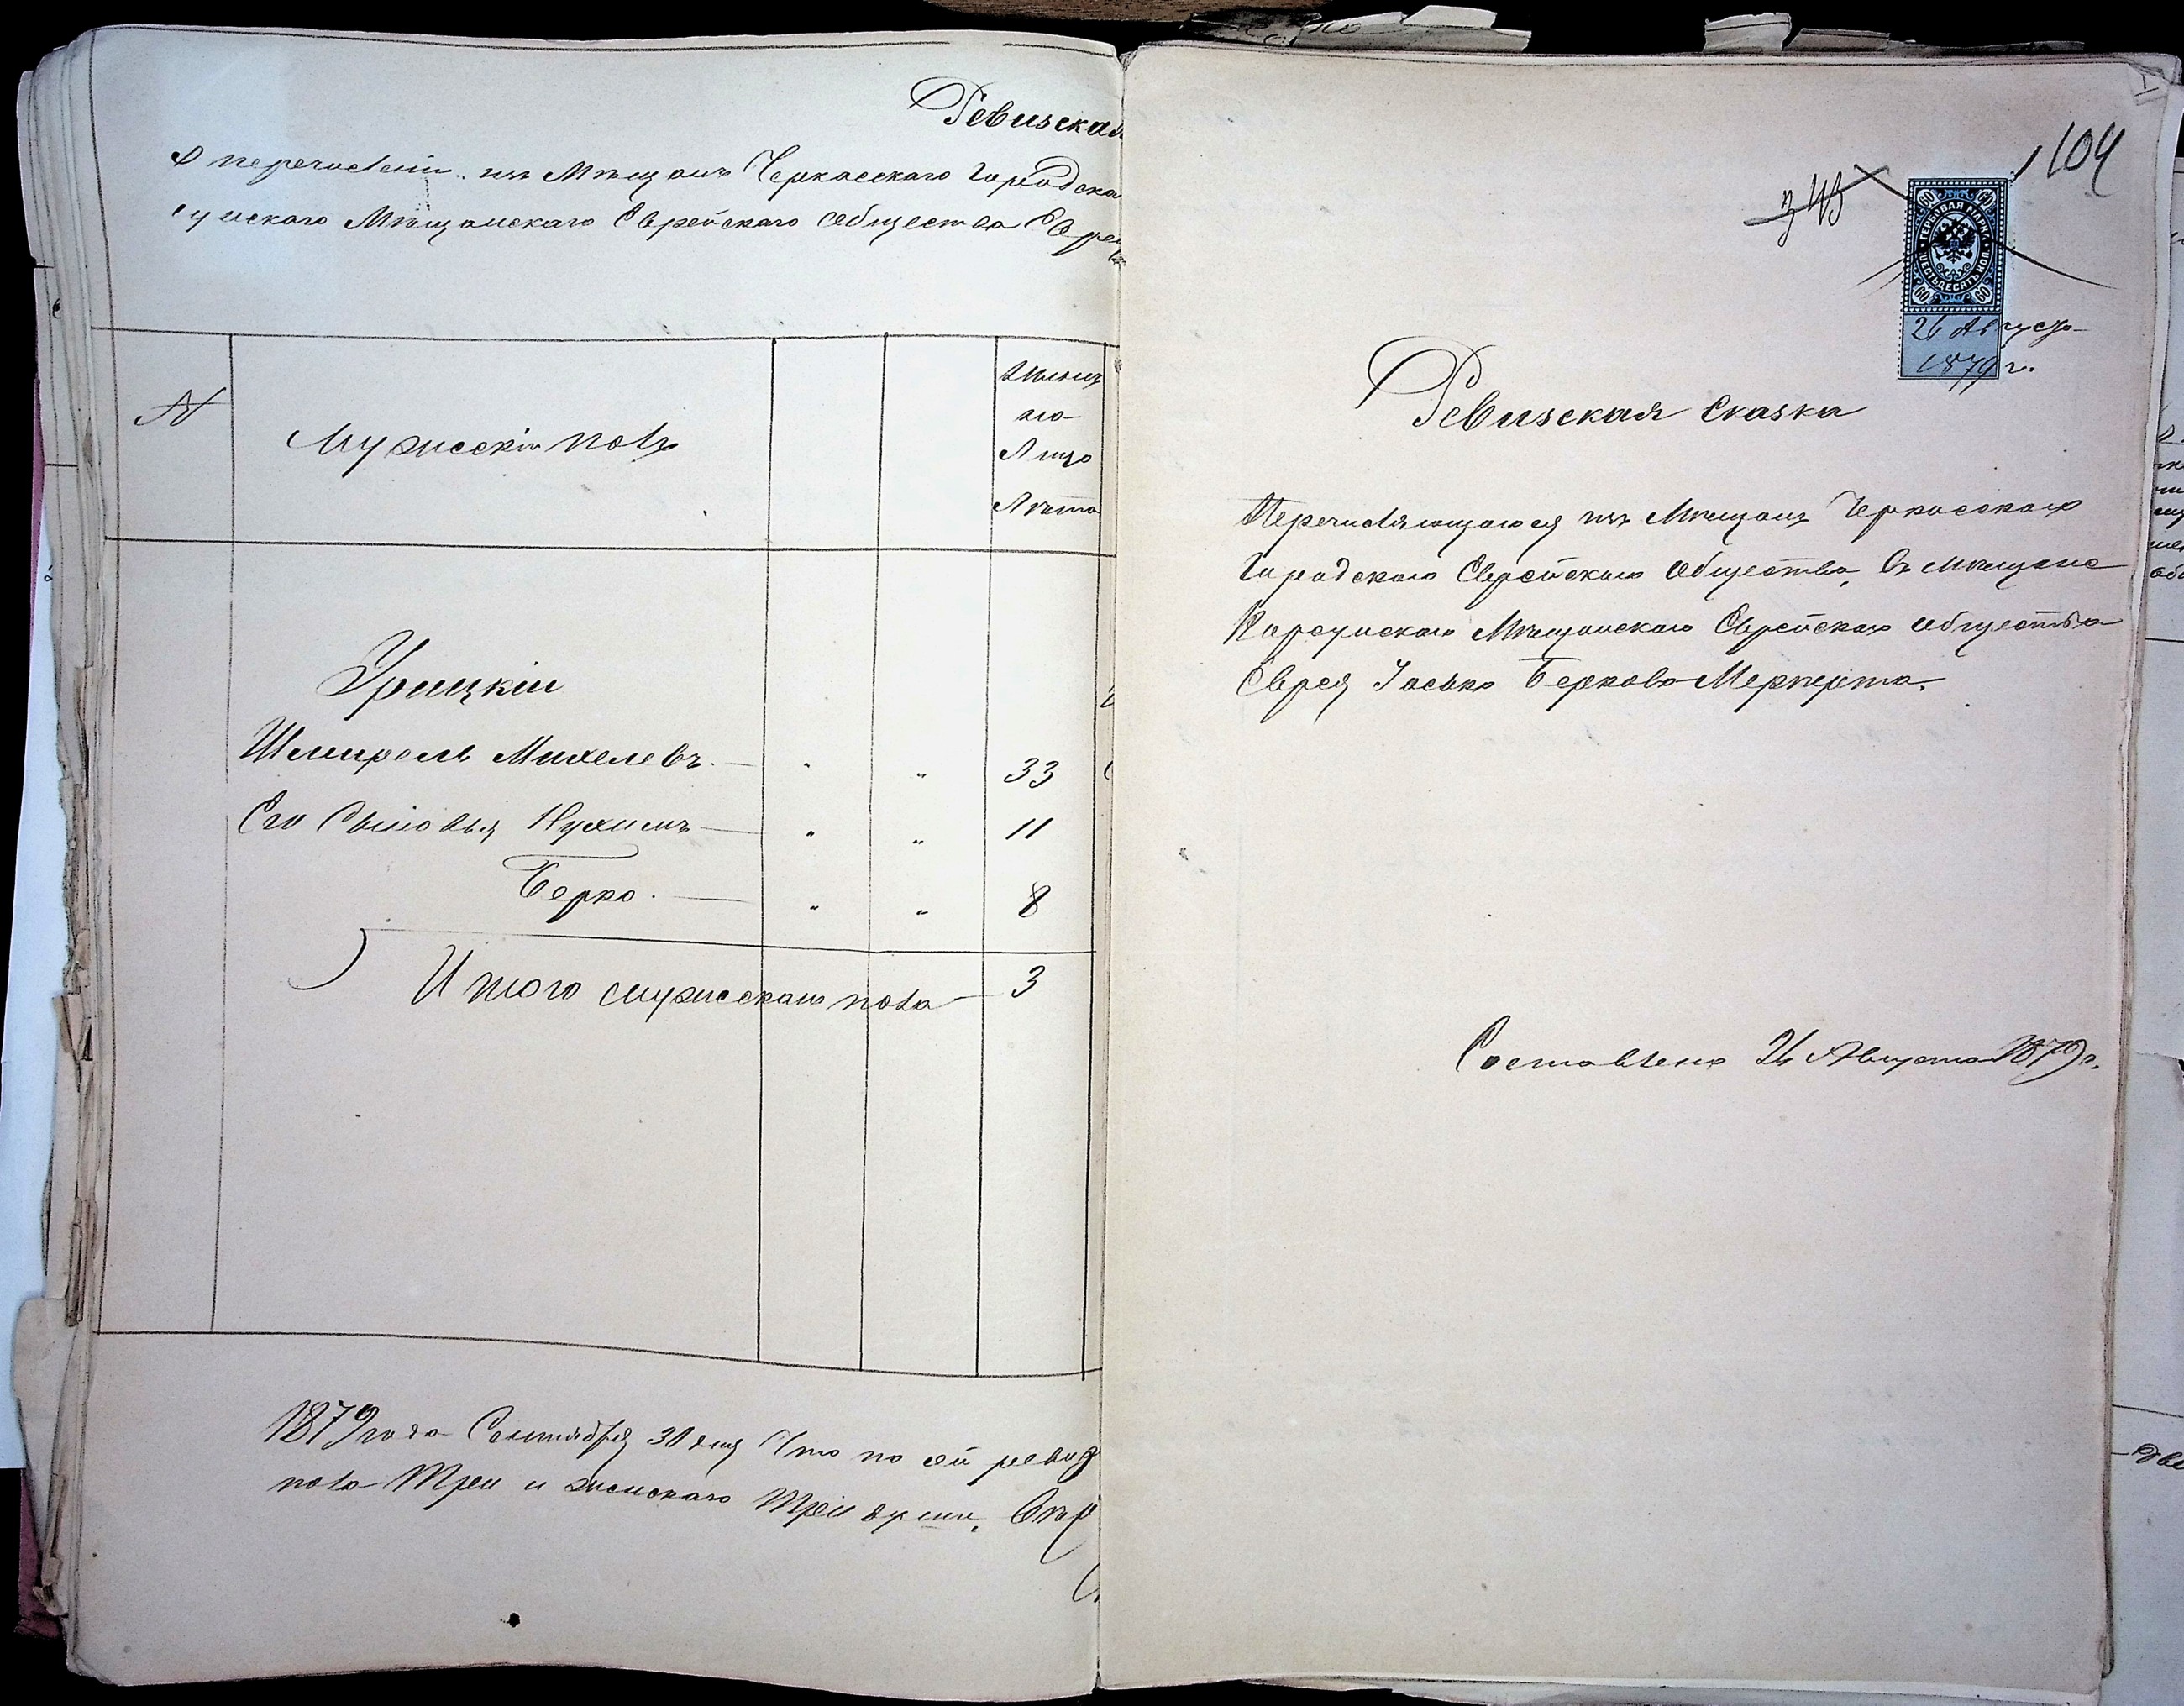 Ревизская
О перечислении изъ Мѣщанъ Черкасскаго Городска
сунскаго Мѣщанскаго Еврейскаго Общества Евре
№
Мужескій полъ
Лицо
Лѣта
Урицкій
Шмирель Михелевъ. 33
Его Сыновья Нухимъ 11
Берко. 8
Итого мужескаго пола 3
1879 года Сентября 30 дня Что по сей ревиз
пола Три и женскаго Три души,
104
ГЕРБОВАЯ МАРКА
ШЕСТЬДЕСЯТЪ КОП.
60 60
60 60
26 Августа
1879 г.
Ревизская Сказка
Перечисляющагося изъ Мѣщанъ Черкасскаго
Городскаго Еврейскаго Общества, въ мѣщане
Корсунскаго Мѣщанскаго Еврейскаго Общества
Еврея Іосько Беркова Мерперта.
Составлена 26 Августа 1879 г.